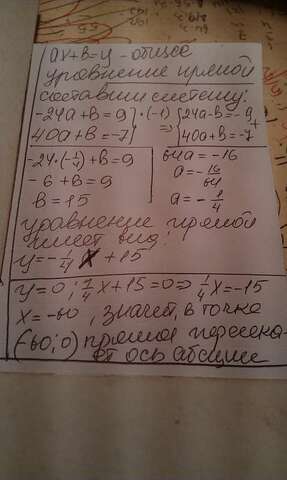 ах+в=у - общее
уравнение прямой
составим систему:
-24а+в=9 }·(-1) => { 24а-в=-9
40а+в=-7 } { 40а+в=-7 +
-24·(-1/4)+в=9
-6+в=9
в=15
64а=-16
а=-16/64
а=-1/4
уравнение прямой
имеет вид:
у=-1/4 х +15
у=0; 1/4х+15=0=>1/4х=-15
х=-60, значит, в точке
(-60;0) прямая пересека-
ет ось абсцисс